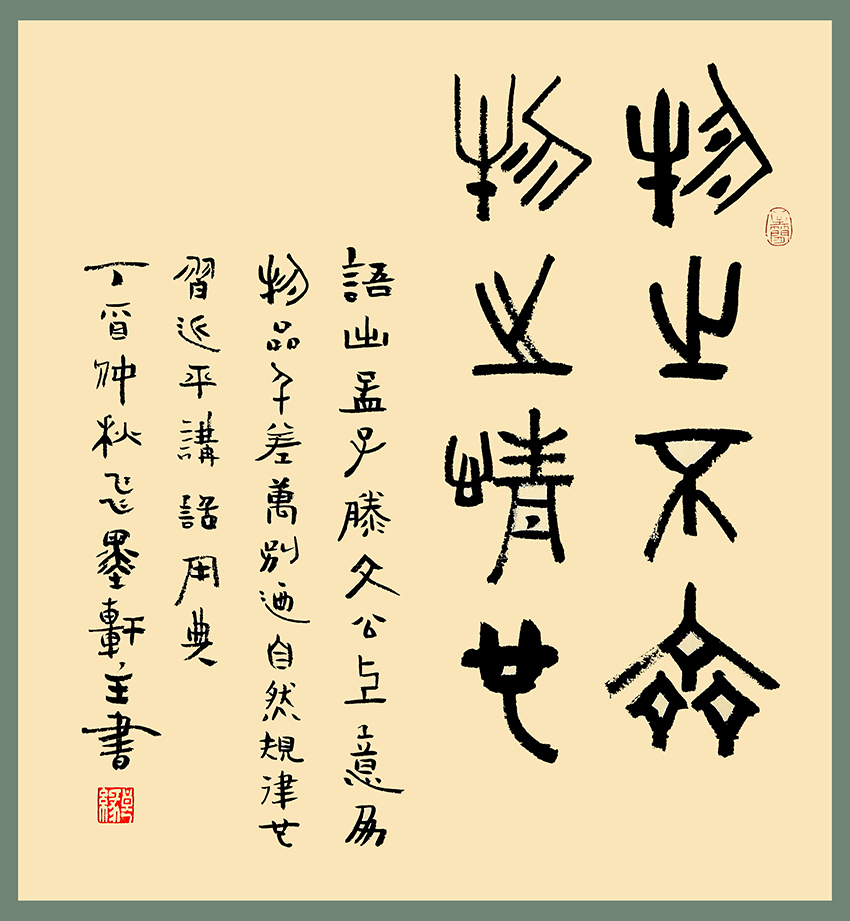 物之不齊
物之情也
語出孟子滕文公上意為
物品千差萬別迺自然規律也
習近平講話用典
丁酉仲秋飞墨軒主書